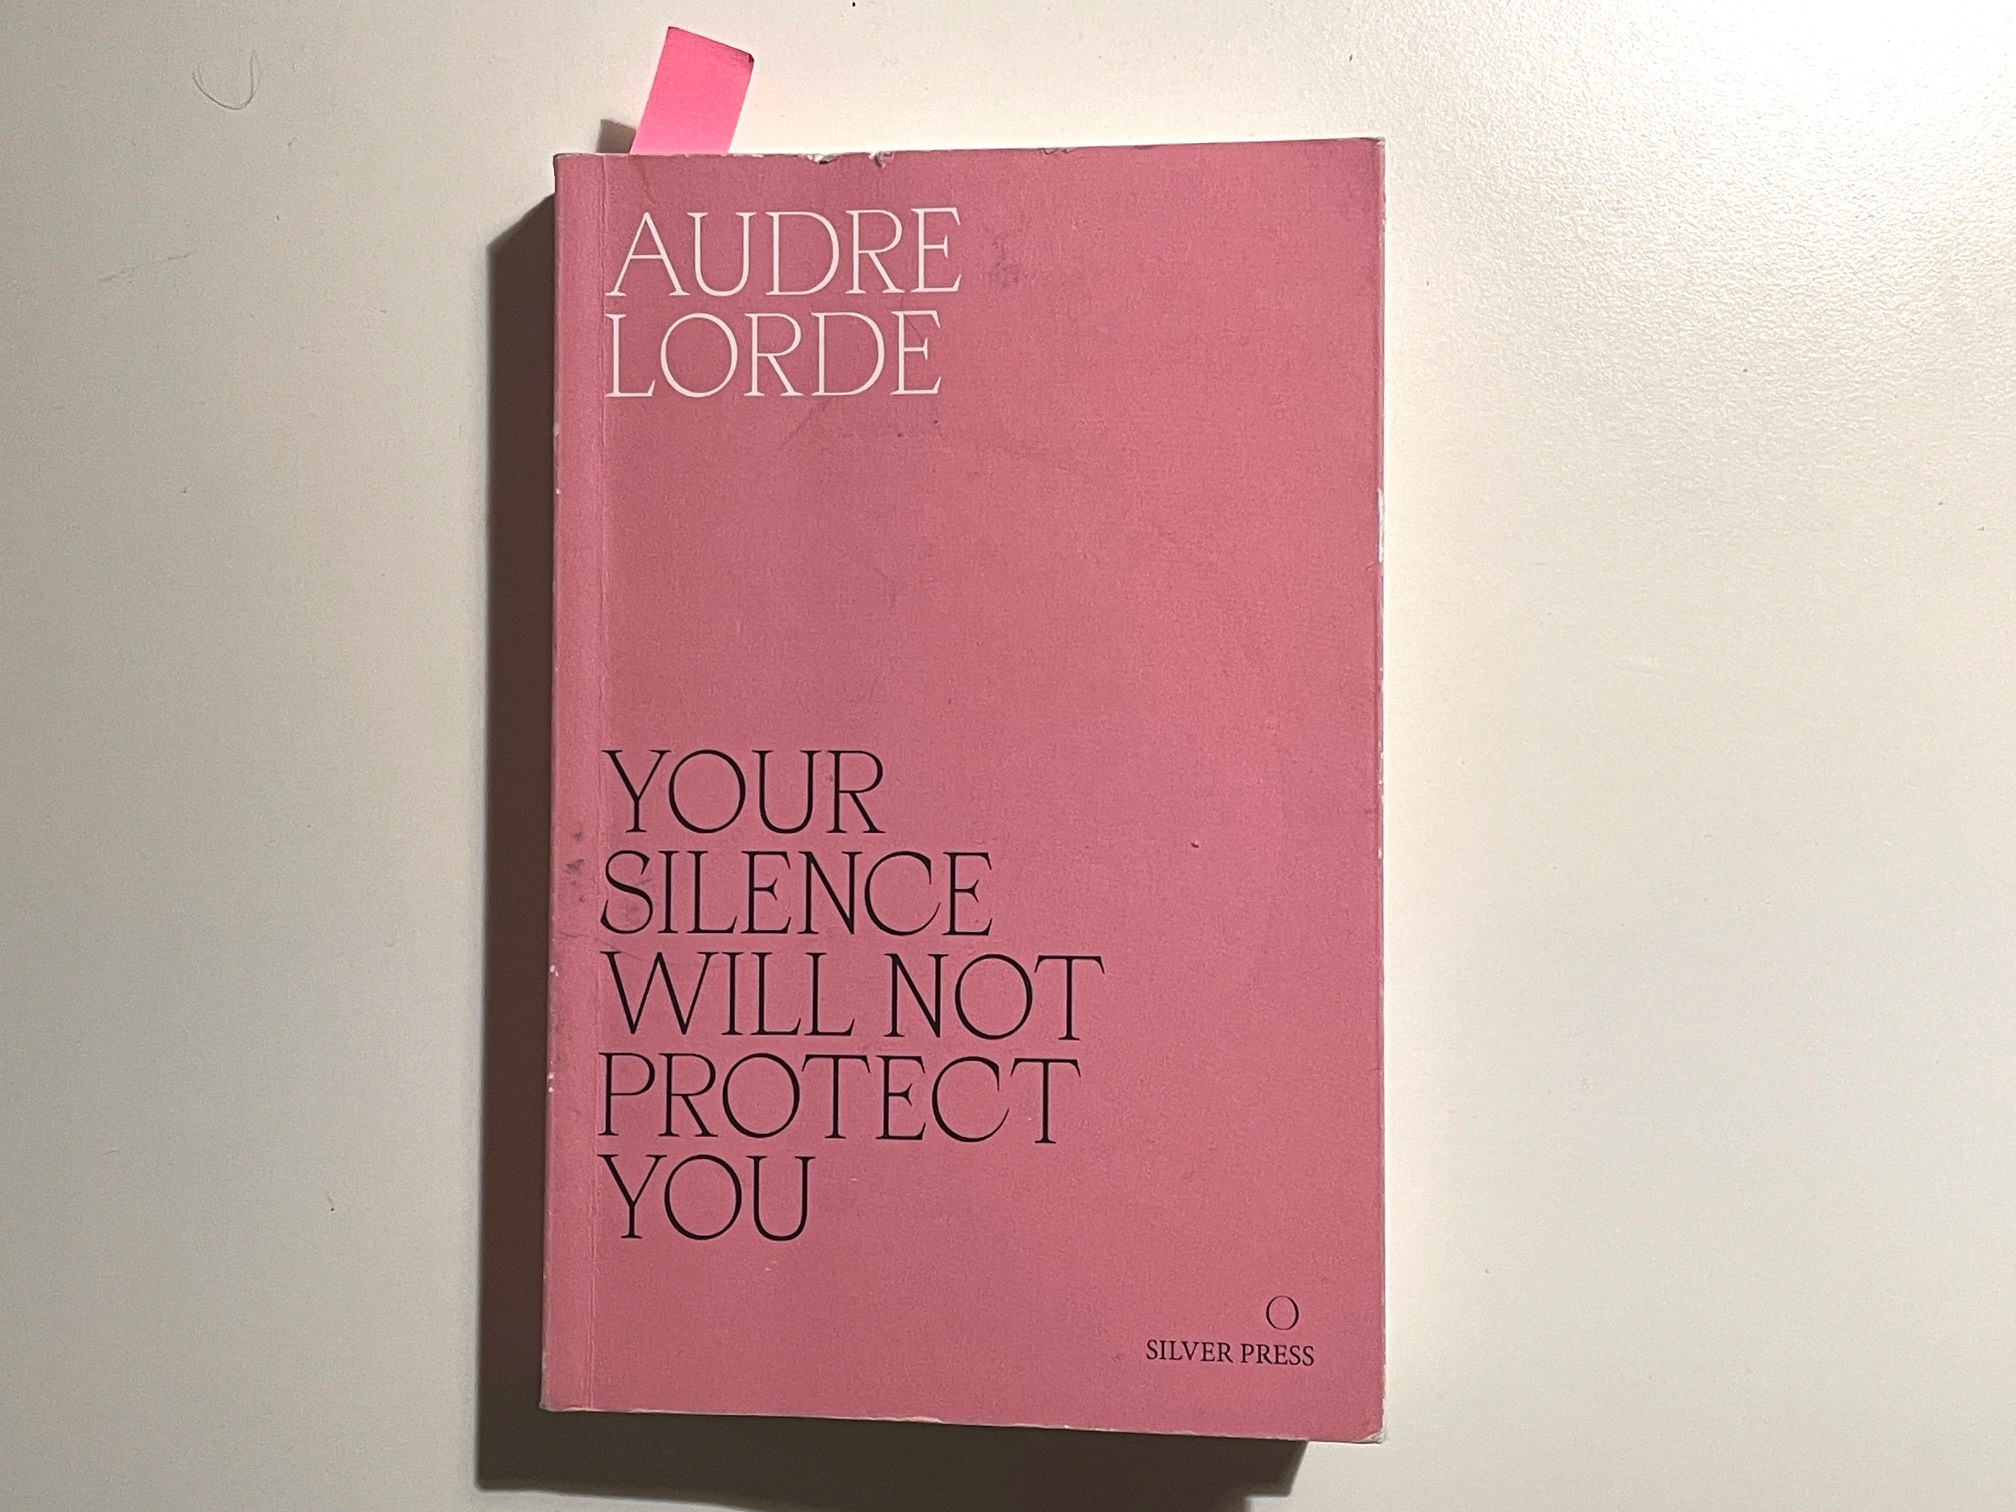 AUDRE
LORDE
YOUR
SILENCE
WILL NOT
PROTECT
YOU
O
SILVER PRESS